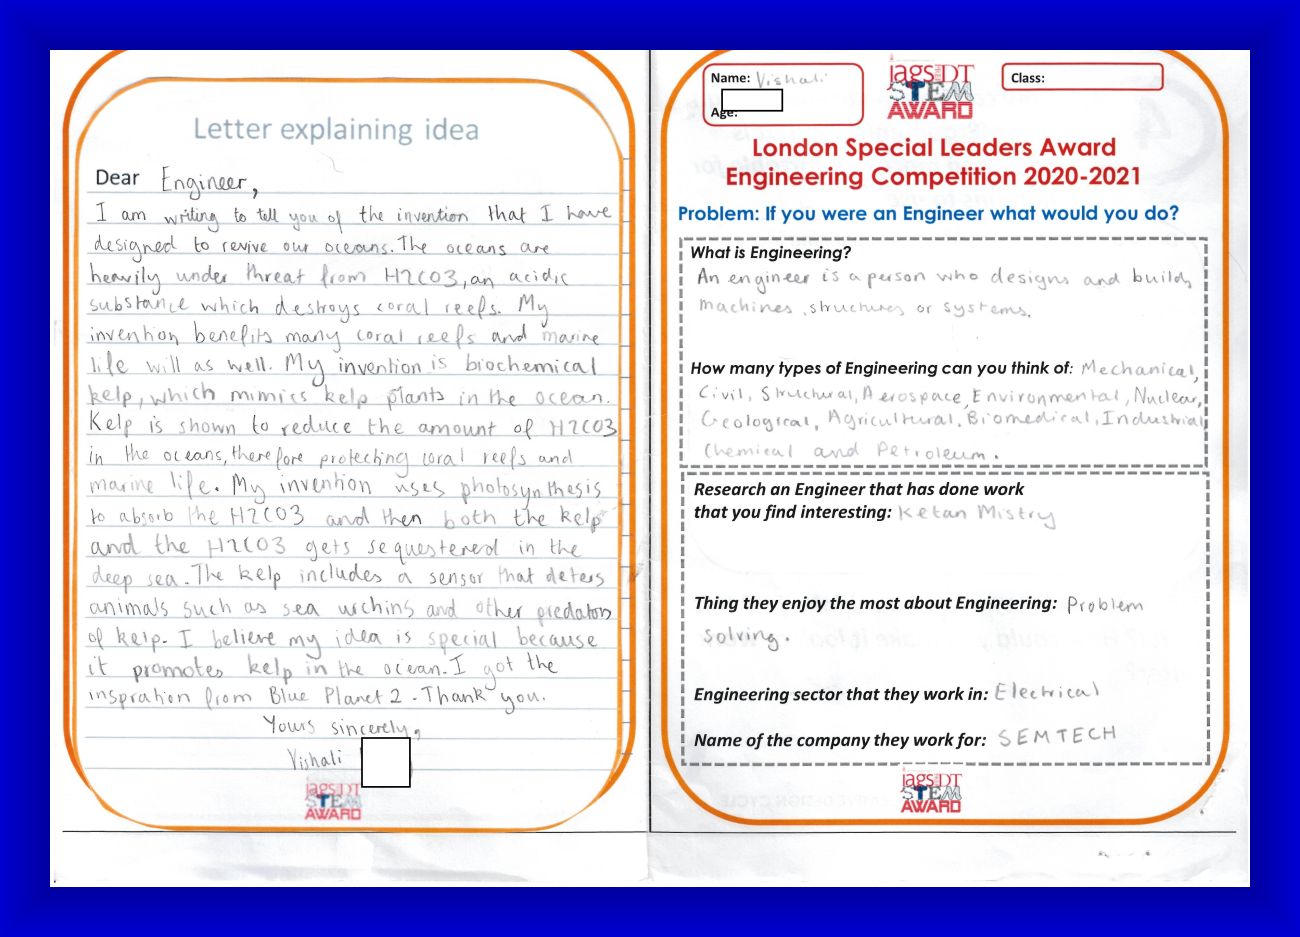 Letter explaining idea
Dear Engineer,
I am writing to tell you of the invention that I have
designed to revive our oceans. The oceans are
heavily under threat from H2CO3, an acidic
substance which destroys coral reefs. My
invention benefits many coral reefs and marine
life will as well. My invention is biochemical
kelp, which mimics kelp plants in the ocean.
Kelp is shown to reduce the amount of H2CO3
in the oceans, therefore protecting coral reefs and
marine life. My invention uses photosynthesis
to absorb the H2CO3 and then both the kelp
and the H2CO3 gets sequestered in the
deep sea. The kelp includes a sensor that deters
animals such as sea urchins and other predators
of kelp. I believe my idea is special because
it promotes kelp in the ocean. I got the
inspration from Blue Planet 2. Thank you.
Yours sincerely,
Vishali
jagsDT
STEM
AWARD
Name: Vishali
Age:
jagsDT
STEM
AWARD
Class:
London Special Leaders Award
Engineering Competition 2020-2021
Problem: If you were an Engineer what would you do?
What is Engineering?
An engineer is a person who designs and builds
machines, structures or systems.
How many types of Engineering can you think of: Mechanical,
Civil, Structural, Aerospace, Environmental, Nuclear,
Geological, Agricultural, Biomedical, Industrial
Chemical and Petroleum.
Research an Engineer that has done work
that you find interesting: Ketan Mistry
Thing they enjoy the most about Engineering: Problem
solving.
Engineering sector that they work in: Electrical
Name of the company they work for: SEMTECH
jagsDT
STEM
AWARD